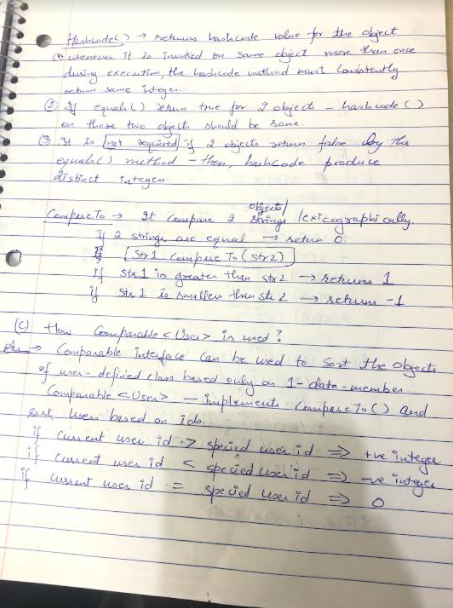 Hashcode() → returns hashcode value for the object
① whenever it is invoked on same object more than once
during execution, the hashcode method must consistently
return same integer.
② If equals() return true for 2 object - hashcode()
on those two objects should be same.
③ It is not required if 2 objects return false by the
equals() method - then, hashcode produce
distinct integer
CompareTo → It compare 2 strings objects/ lexicographically.
If 2 strings are equal → return 0.
[str1 compareTo(str2)]
if str1 is greater than str2 → returns 1
if str1 is smaller than str2 → returns -1
(c) How Comparable <User> is used?
→ Comparable interface can be used to sort the objects
of user-defined class based only on 1-data-member.
Comparable <User> — implements compareTo() and
sort users based on ids.
if current user id > specied user id ⇒ +ve integer
if current user id < specied user id ⇒ -ve integer
if current user id = specied user id ⇒ 0